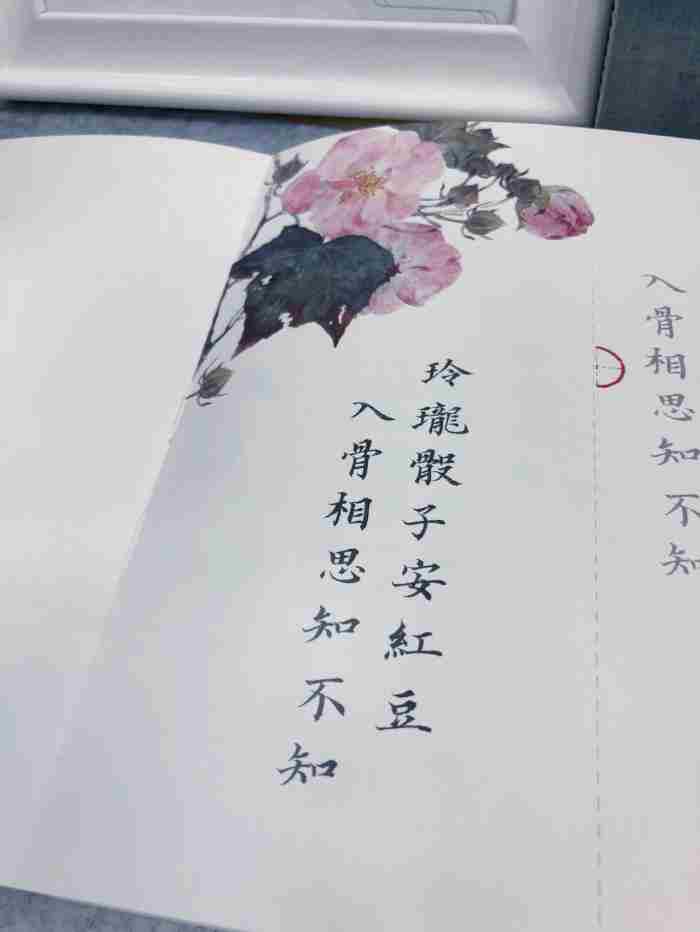 玲瓏骰子安紅豆
入骨相思知不知
入骨相思知不知